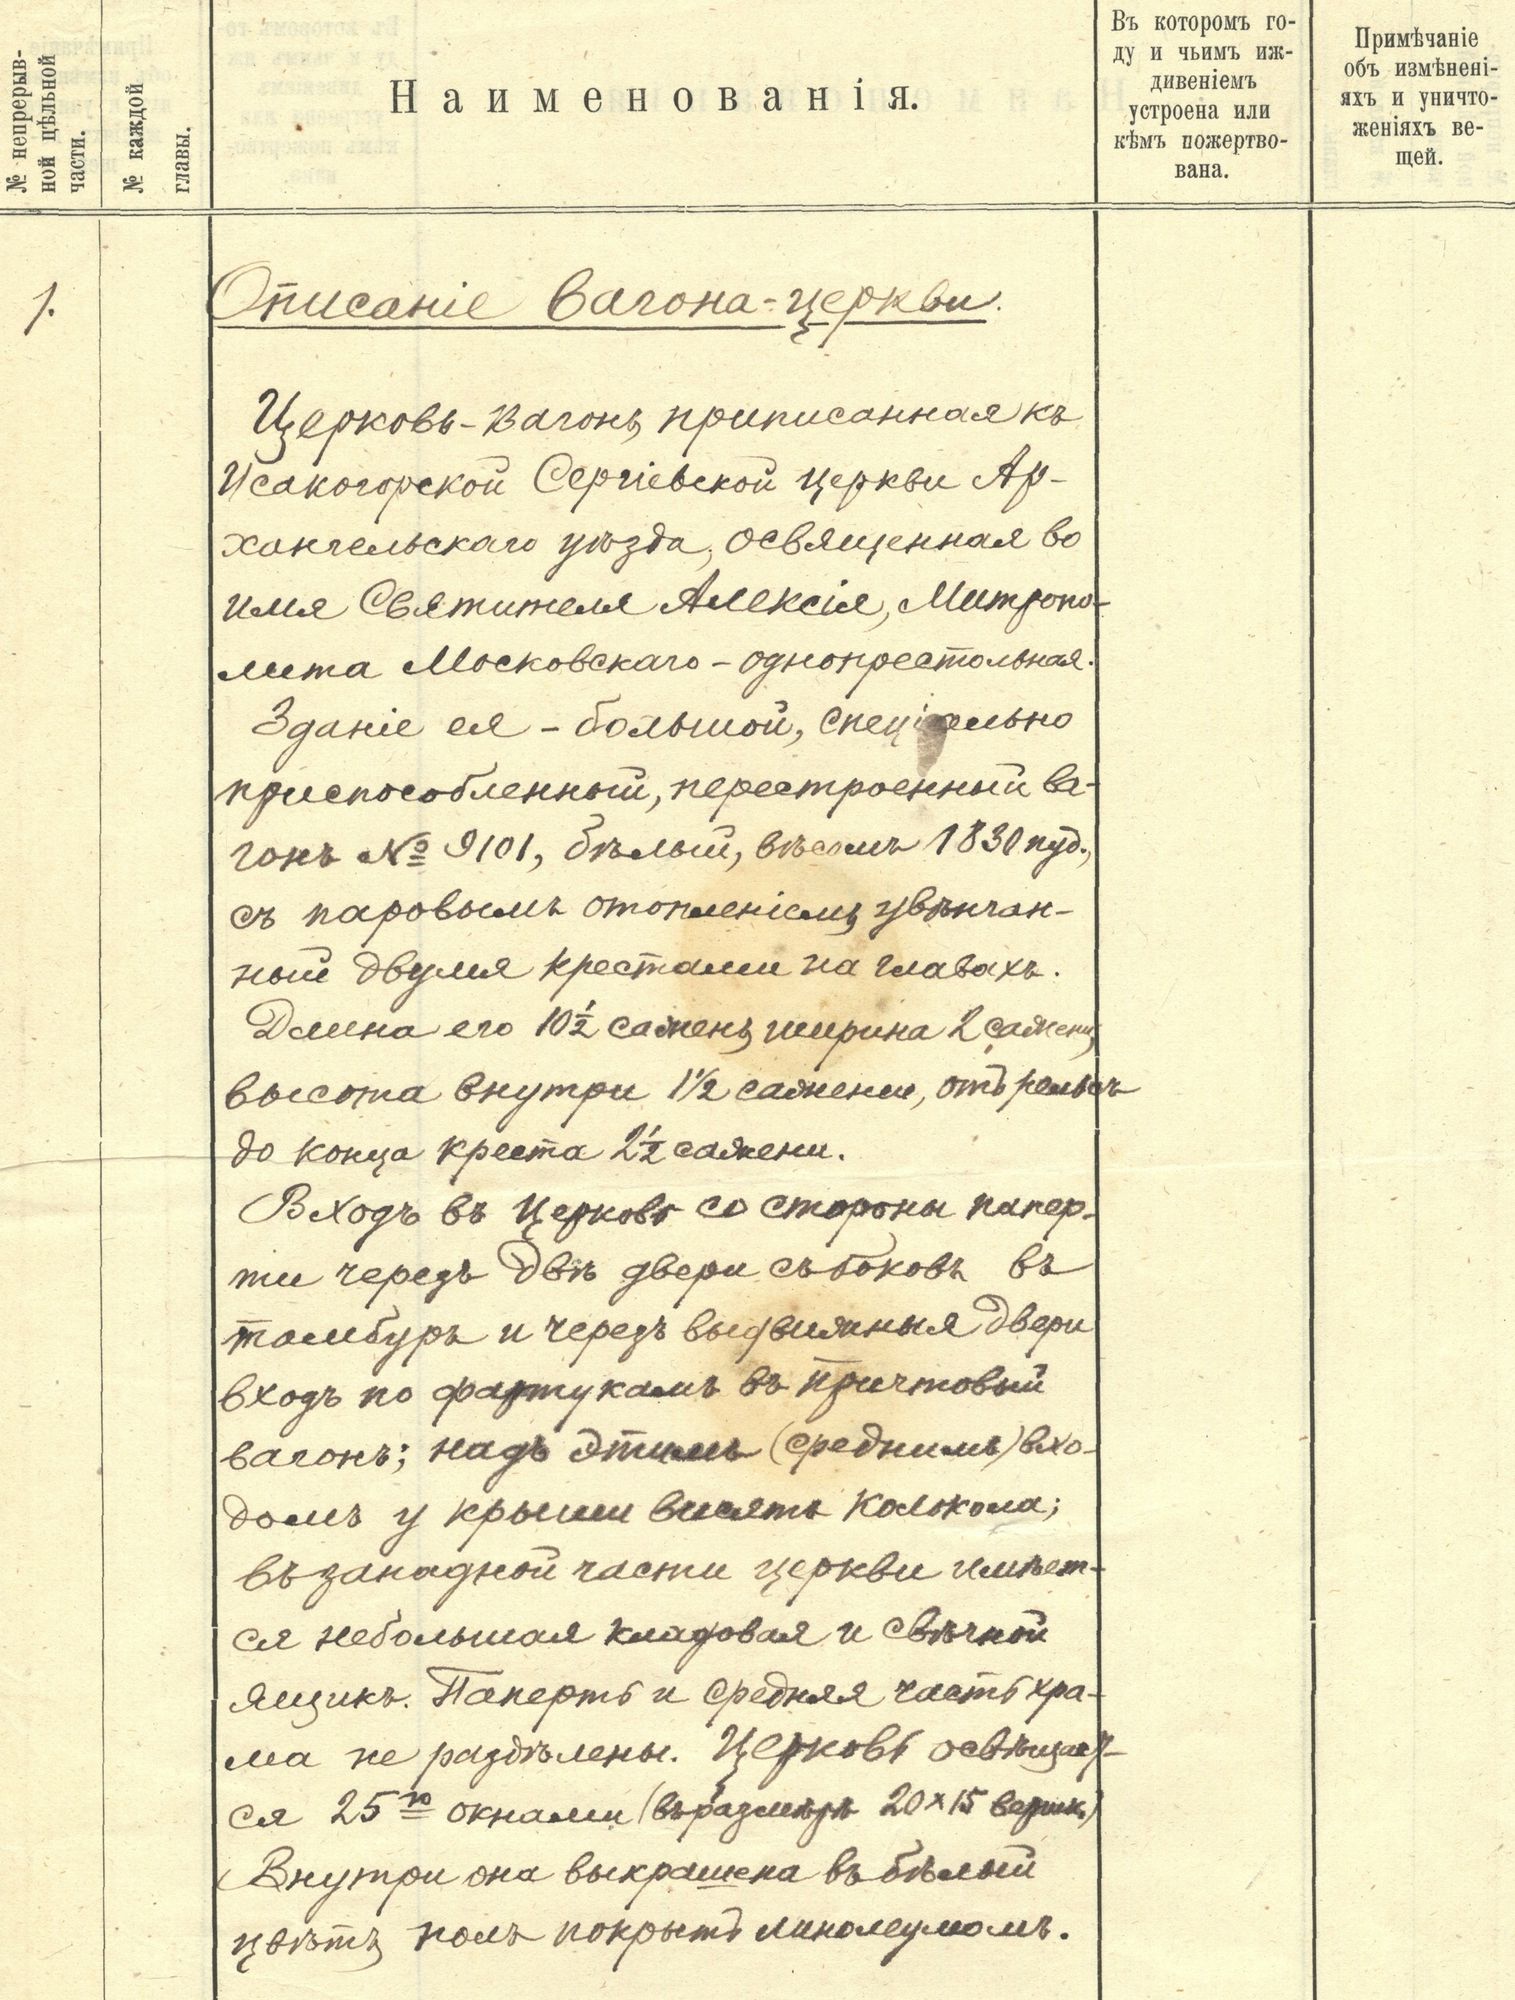 № непрерыв-
ной цѣльной
части.
№ каждой
главы.
Наименованія.
Въ которомъ го-
ду и чьимъ иж-
дивеніемъ
устроена или
кѣмъ пожертво-
вана.
Примѣчаніе
объ измѣнені-
яхъ и уничто-
женіяхъ ве-
щей.
1.
Описаніе вагона-церкви.
Церковь-вагонъ, приписанная къ
Исакогорской Сергіевской церкви Ар-
хангельскаго уѣзда, освященная во
имя Святителя Алексія, Митропо-
лита Московскаго – однопрестольная.
Зданіе ея – большой, спеціально
приспособленный, перестроенный ва-
гонъ № 9101, бѣлый, вѣсомъ 1830 пуд.,
съ паровымъ отопленіемъ, увѣнчан-
ный двумя крестами на главахъ.
Длина его 10½ сажень, ширина 2 сажени,
высота внутри 1½ сажени, отъ рельсъ
до конца креста 2½ сажени.
Входъ въ церковь со стороны папер-
ти черезъ двѣ двери съ боковъ въ
тамбуръ и черезъ выдвижныя двери
входъ по фартукамъ въ причтовый
вагонъ; надъ этимъ (среднимъ) вхо-
домъ у крыши висятъ колокола;
въ западной части церкви имѣет-
ся небольшая кладовая и свѣчной
ящикъ. Паперть и средняя часть хра-
ма не раздѣлены. Церковь освѣщает-
ся 25ю окнами (въ размѣрѣ 20×15 вершк.)
Внутри она выкрашена въ бѣлый
цвѣтъ, полъ покрытъ линолеумомъ.